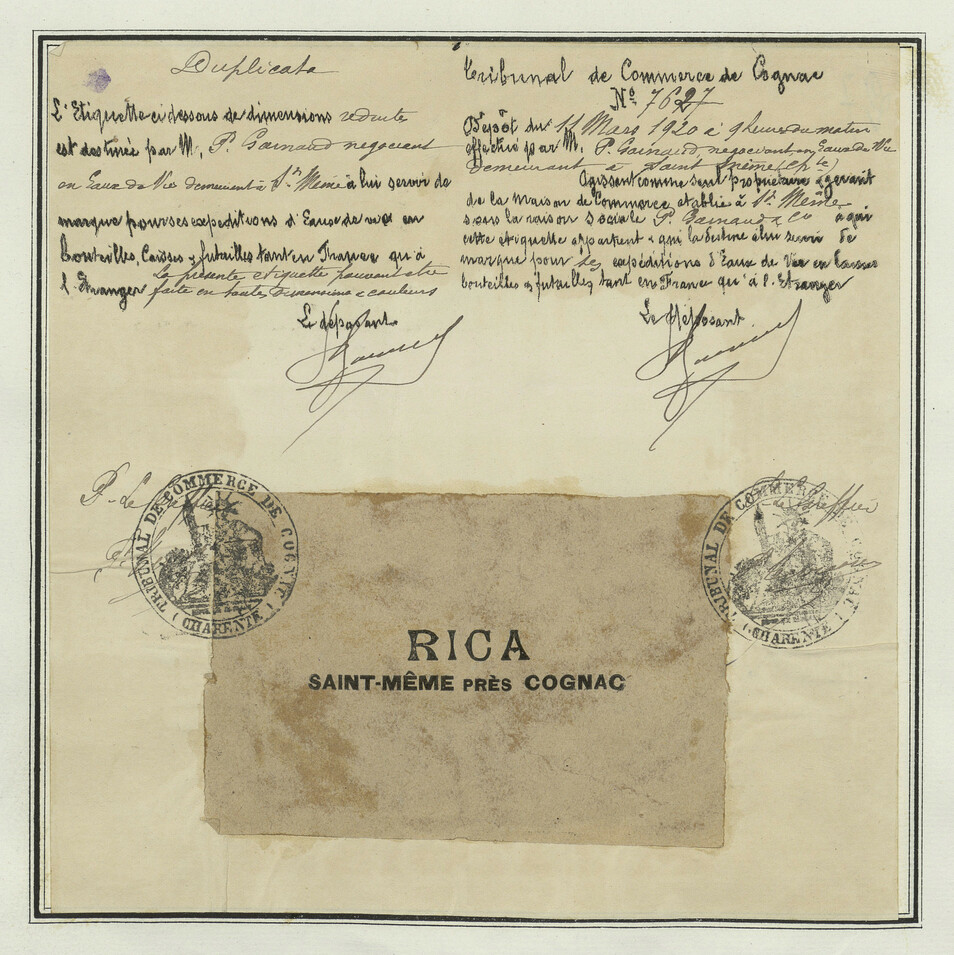 Duplicata
L'Etiquette ci dessous de dimensions réduite
est destinée par M. P. Garnaud négociant
en Eaux de Vie demeurant à St Même à lui servir de
marque pour ses expeditions d'Eaux de vie en
bouteilles, Caisses & futailles tant en France qu'à
l'Etranger la présente etiquette pouvant être
faite en toutes dimensions & couleurs
Le déposant
Tribunal de Commerce de Cognac
No 7627
Dépôt du 11 Mars 1920 à 9 heures du matin
effectué par M. P. Garnaud, négociant en Eaux de Vie
demeurant à Saint Même (Chte)
Agissant comme seul propriétaire & gérant
de la Maison de Commerce établie à St Même
sous la raison sociale P. Garnaud & Co à qui
cette etiquette appartient & qui la destine à lui servir de
marque pour ses expéditions d'Eaux de Vie en Caisses
bouteilles & futailles tant en France qu'à l'Etranger
Le Déposant
P. le Greffier
TRIBUNAL DE COMMERCE DE COGNAC
(CHARENTE)
Greffier
TRIBUNAL DE COMMERCE
(CHARENTE)
RICA
SAINT-MÊME PRÈS COGNAC